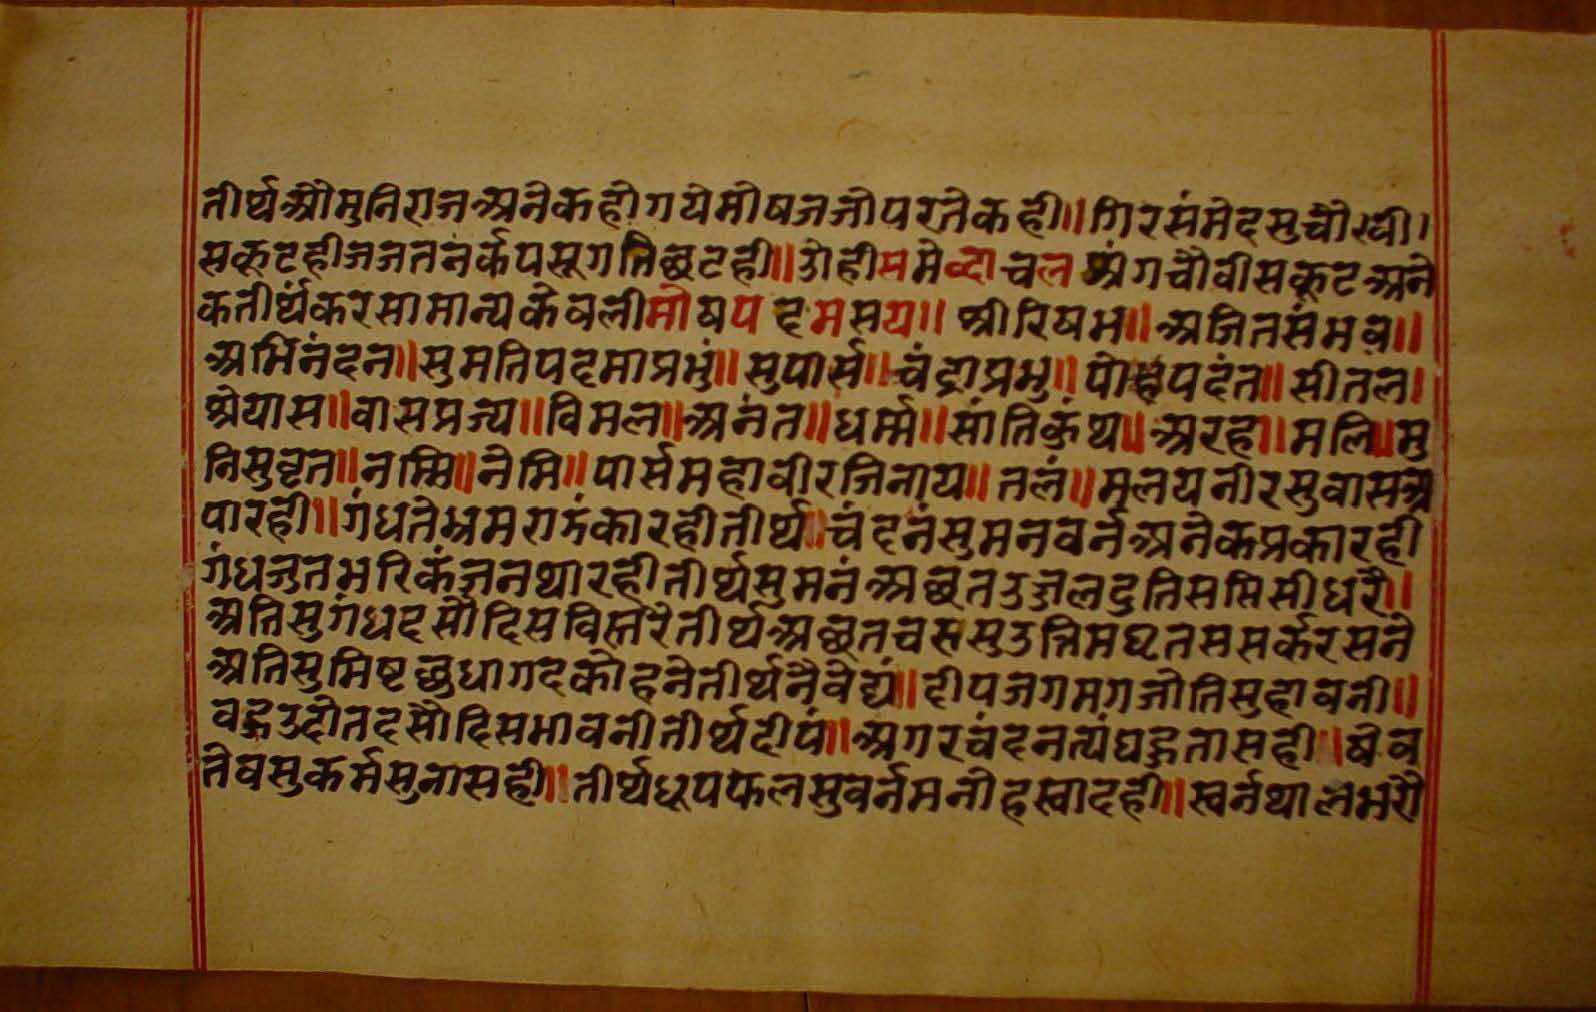 तीर्थ औ मुनिराज अनेक ही गये मोष जजो परतेक ही॥ गिर संमेद सु चौखी।
सकूट ही जजत नर्क पसू गति छूट ही॥ उोंही समेव्दाचल श्रंग चौवीस कूट अने
क तीर्थंकर सामान्य केवली मोषपदमसय॥ श्री रिषभ॥ अजित संभव॥
अभिनंदन॥ सुमति पदमाप्रभुं॥ सुपार्स॥ चंद्राप्रभु॥ पोहपदंत॥ सीतल।
श्रेयास॥ वासप्रज्य॥ विमल॥ अनंत॥ धर्म्म॥ सांति कुंथ॥ अरहा॥ मलि॥ मु
निसुवृत॥ नम्मि॥ नेमि॥ पार्स महावीर जिनाय॥ तलं॥ मलय नीर सुवास अ
पार ही॥ गंध ते भ्रमरा झंकार ही तीर्थ॥ चंदनं सुमन वर्न अनेक प्रकार ही
गंध जुत भरि कंजन थार ही तीर्थ सुमनं अछत उज्जल दुति ससि सी धरै॥
अति सुगंध दसौ दिस विस्तरे तीर्थ अछत चस सु उत्तिम घृत स सर्करसने
अति सुमिष्ट छुधागद को हने तीर्थ नैवेद्यं॥ दीप जगमग जोति सुहावनी॥
वहु उदोत दसौ दिस भावनी तीर्थ दीपं॥ अगर चंदन त्यं घहुतास ही॥ षेव
ते वसु कर्म सु नास ही॥ तीर्थ धूप फल सुवर्न मनोह स्वाद ही॥ स्वर्न थाल भरौ